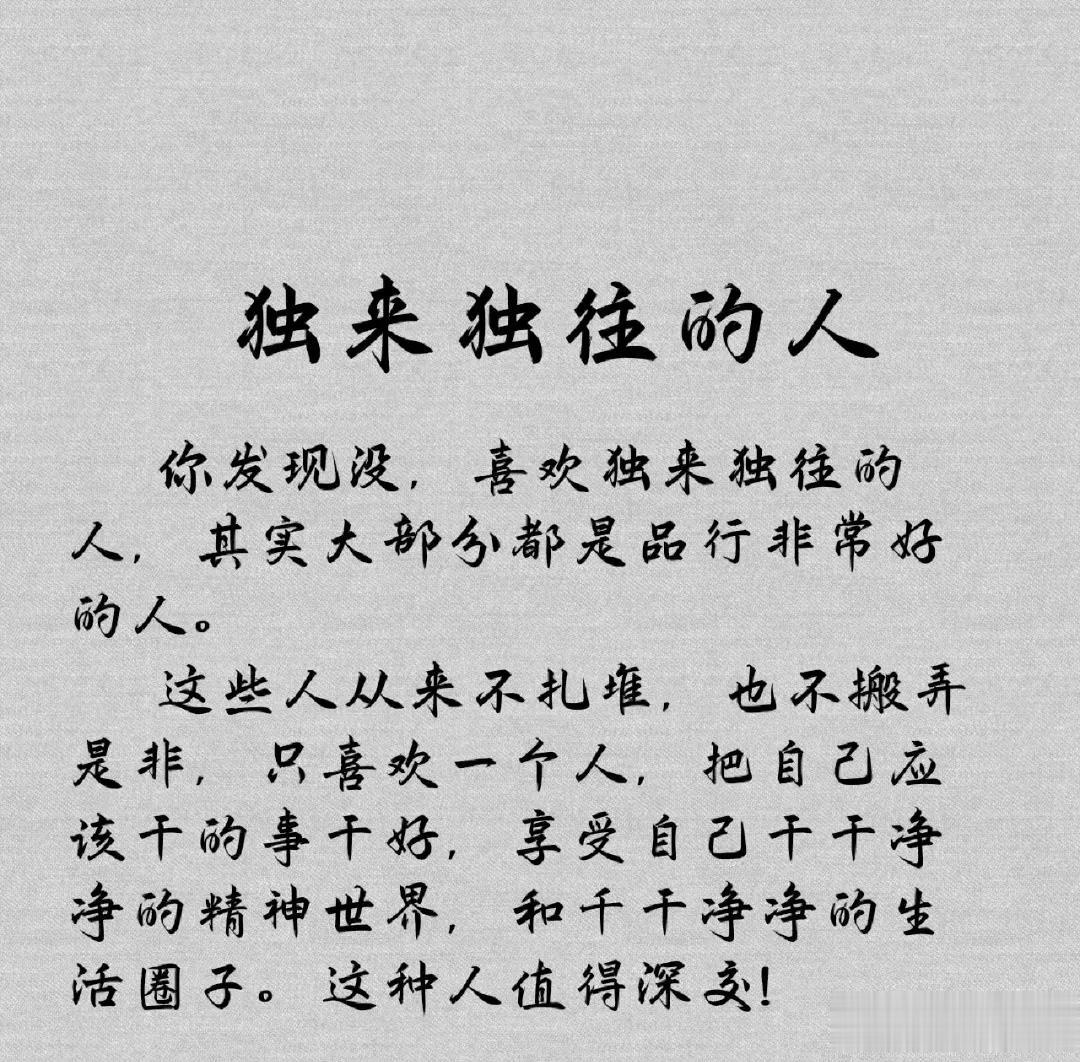 独来独往的人
你发现没，喜欢独来独往的
人，其实大部分都是品行非常好
的人。
这些人从来不扎堆，也不搬弄
是非，只喜欢一个人，把自己应
该干的事干好，享受自己干干净
净的精神世界，和千干净净的生
活圈子。这种人值得深交！